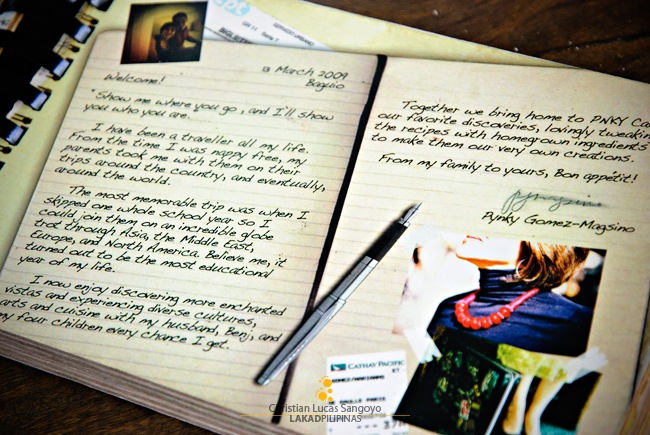 13 March 2009
Baguio
Welcome!
"Show me where you go, and I'll show
you who you are.
I have been a traveller all my life.
From the time I was nappy free, my
parents took me with them on their
trips around the country, and eventually,
around the world.
The most memorable trip was when I
skipped one whole school year so I
could join them on an incredible globe
trot through Asia, the Middle East,
Europe, and North America. Believe me, it
turned out to be the most educational
year of my life.
I now enjoy discovering more enchanted
vistas and experiencing diverse cultures,
arts and cuisine with my husband, Benj, and
my four children every chance I get.
Together we bring home to PNKY Ca
our favorite discoveries, lovingly tweakin
the recipes with homegrown ingredients
to make them our very own creations.
From my family to yours, Bon appétit!
Pynky Gomez-Magsino
CATHAY PACIFIC
Christian Lucas Sangoyo
LAKADPILIPINAS